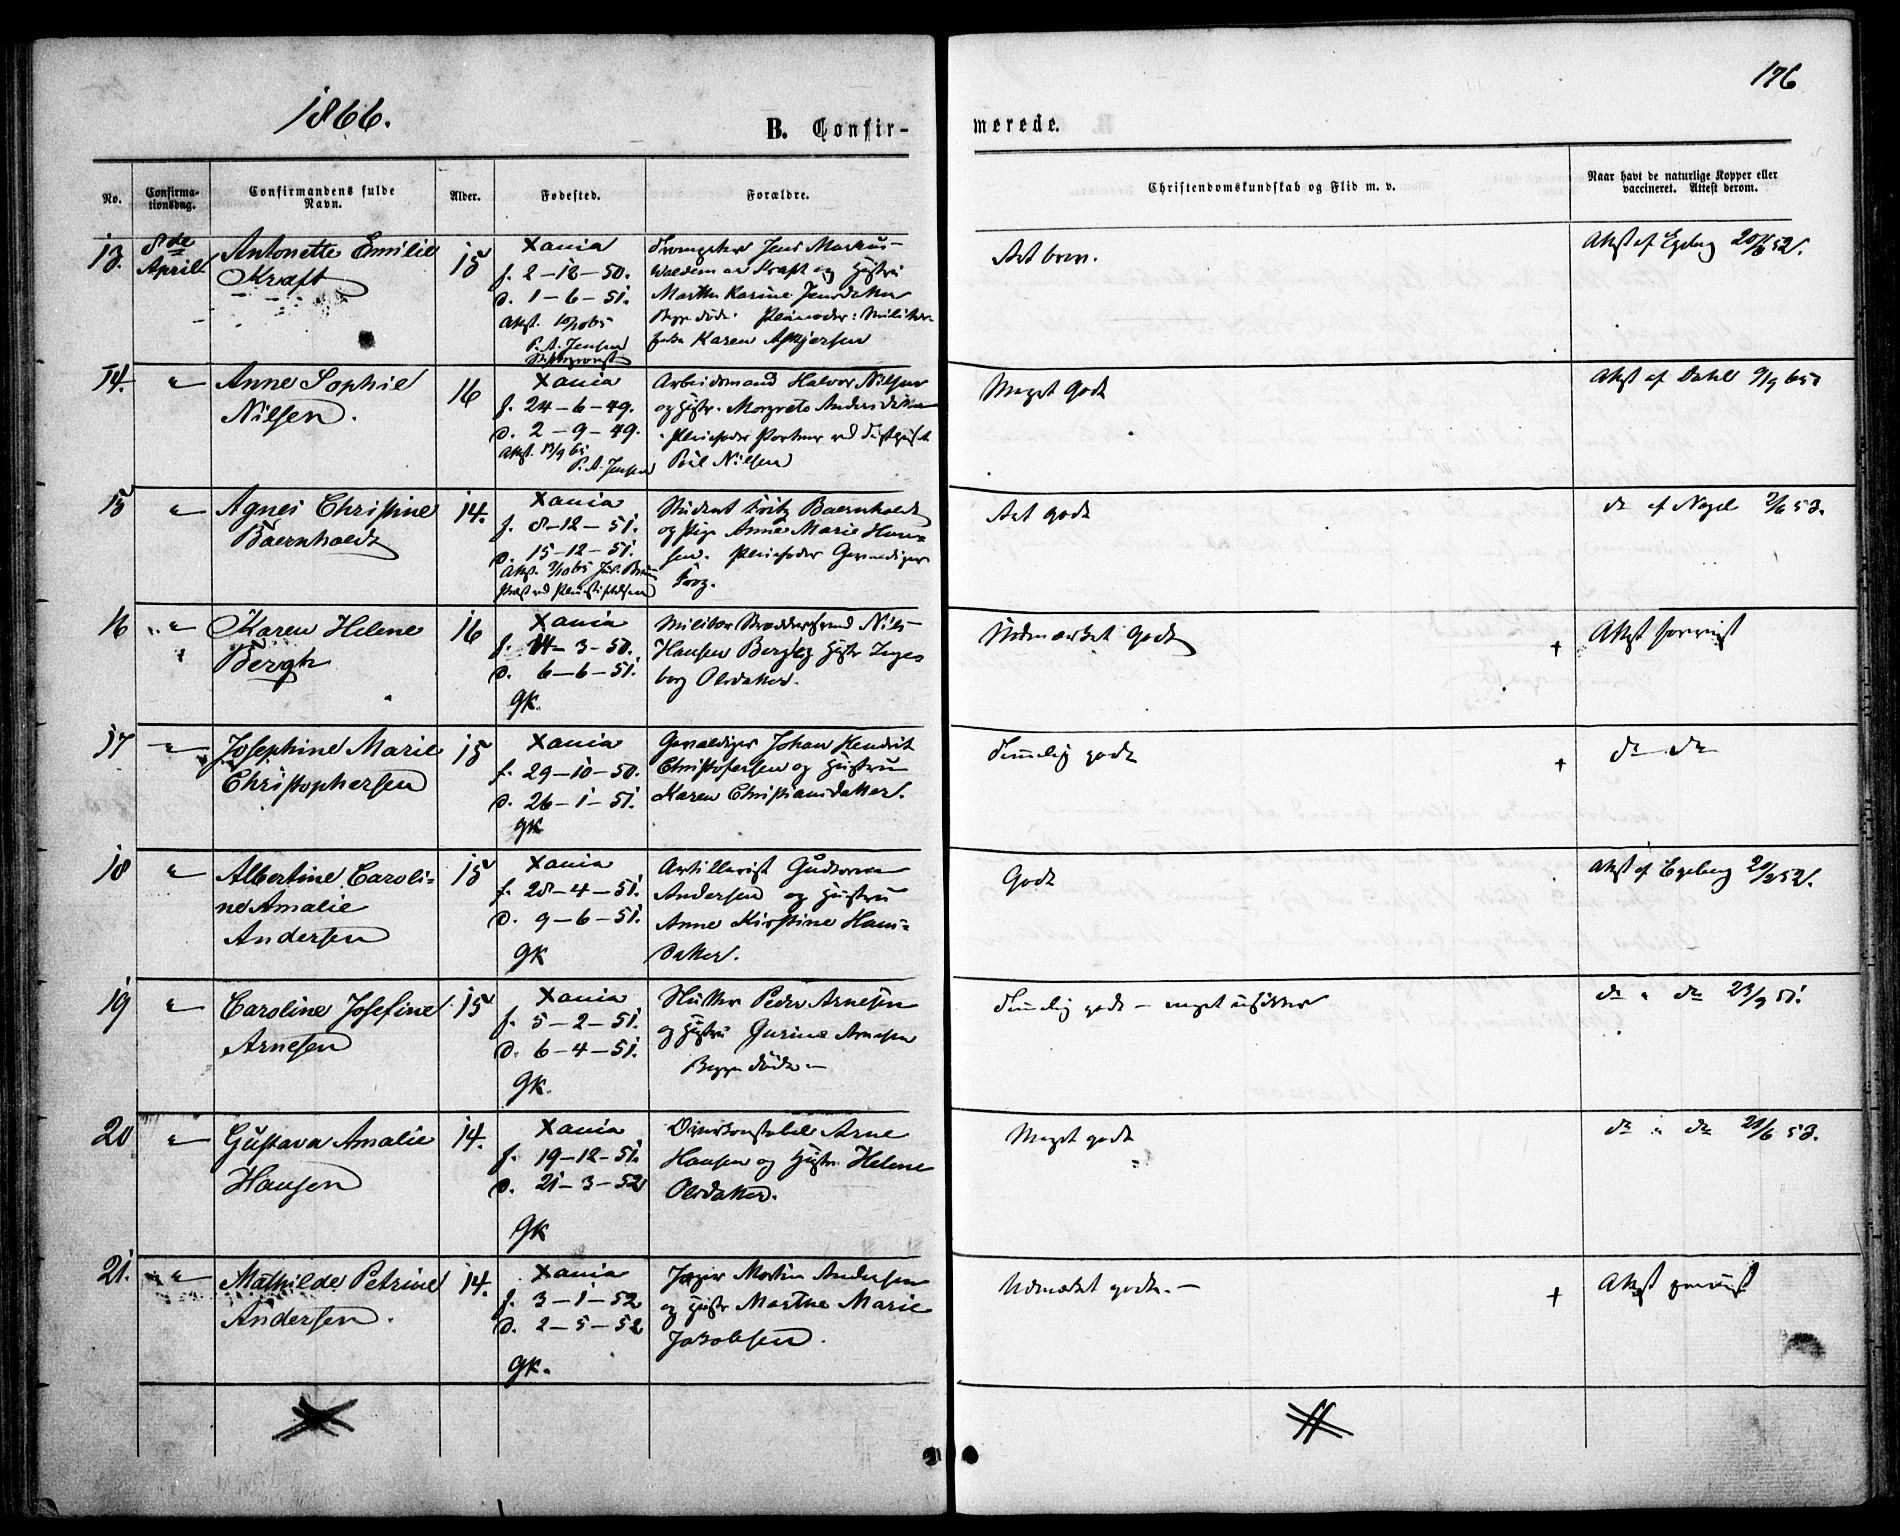 176
1866.
B. Confir-
merede.
No.
Confirma-
tionsdag.
Confirmandens fulde
Navn.
Alder.
Fødested.
Forældre.
Christendomskundskab og Flid m. v.
Naar havt de naturlige Kopper eller
vaccineret. Attest derom.
13.
8de
April
Antonette Emilie
Kraft
15
Xania
f. 2-12-50.
d. 1-6-51.
Attst.
P. A. Jensen
Jens Markus
Kraft og Hustru
Marthe Karine Jensdatter
Begge døde. Pleiemoder:
Karen Asbjørnsen
Attst af Egeberg 52.
14.
"
Anne Sophie
Nilsen.
16
Xania
f. 24-6-49.
d. 2-9-49.
Attst. 13/9 65
P. A. Jensen
Arbeidsmand Halvor Nilsen
og Hustr. Margrete Andersdatter
Nilsen
Meget Godt
Attst af Dahl 9/9 65
15
"
Agnes Christine
Baernholdt
14.
Xania
f. 8-12-51.
d. 15-12-51.
Student Fritz Baernholdt
og Pige Anne Marie Han-
sen. Pleiefader Gevaldiger
Godt
do af Nagel 53.
16
"
Karen Helene
Bergh
16
Xania
f. 14-3-50.
d. 6-6-51.
GK.
Nils
Hansen Bergh og Hustr Inge-
borg Olsdatter.
Udmærket Godt
+
Attst forevist
17
"
Josephine Marie
Christophersen
15
Xania
f. 29-10-50.
d. 26-1-51.
GK
Gevaldiger Johan Hendrik
Christofersen og Hustru
Karen Christiansdatter.
Temmelig godt
+
do do
18
"
Albertine Caroli-
ne Amalie
Andersen
15
Xania
f. 28-4-51.
d. 9-6-51.
GK
Artillerist Gudmund
Andersen og Hustru
Anne Kirstine Hans-
datter.
Godt
Attst af Egeberg 52.
19
"
Caroline Josefine
Arnesen
15
Xania
f. 5-2-51.
d. 6-4-51.
GK.
Peder Arnesen
og Hustru Gurine Arnesen
Begge døde
Temmelig godt - meget usikker
do " do 23/9 51.
20
"
Gustava Amalie
Hansen
14.
Xania
f. 19-12-51.
d. 21-3-52
GK
Arne
Hansen og Hustr. Helene
Olsdatter.
Meget godt
do " do 53.
21.
"
Mathilde Petrine
Andersen.
14.
Xania
f. 3-1-52
d. 2-5-52
GK.
Jæger Martin Andersen
og Hustr Marthe Marie
Jakobsen.
Udmærket godt.-
+
Attst forevist